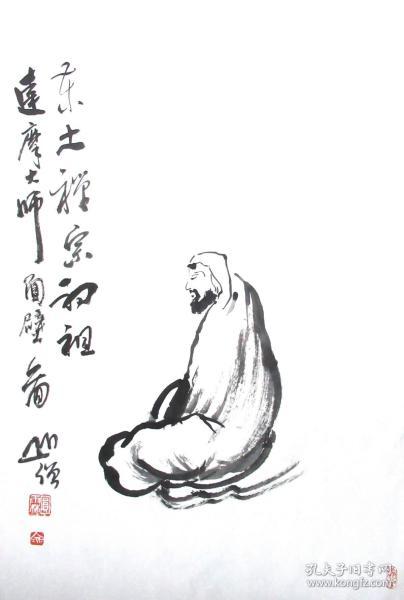 東土禪宗初祖
達摩大师 面壁 图 山僧
孔夫子旧书网
www.kongfz.com